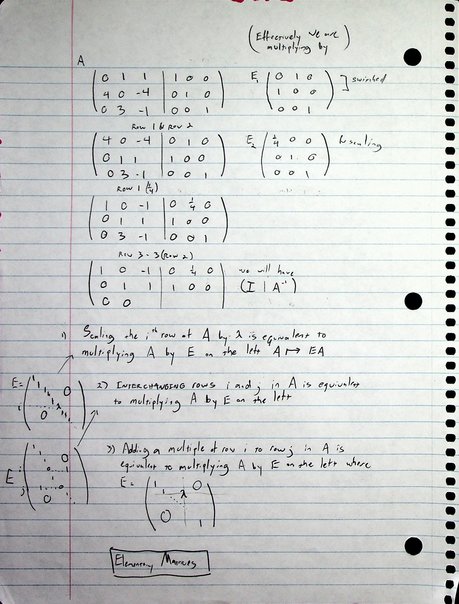 (Effectively we are
multiplying by)
A
( 0 1 1 | 1 0 0 )
( 4 0 -4 | 0 1 0 )
( 0 3 -1 | 0 0 1 )
E₁ ( 0 1 0 ) switched
( 1 0 0 )
( 0 0 1 )
Row 1 & Row 2
( 4 0 -4 | 0 1 0 )
( 0 1 1 | 1 0 0 )
( 0 3 -1 | 0 0 1 )
E₂ ( 1/4 0 0 ) scaling
( 0 1 0 )
( 0 0 1 )
Row 1 (1/4)
( 1 0 -1 | 0 1/4 0 )
( 0 1 1 | 1 0 0 )
( 0 3 -1 | 0 0 1 )
Row 3 - 3(Row 2)
( 1 0 -1 | 0 1/4 0 )
( 0 1 1 | 1 0 0 )
( 0 0
we will have
( I | A⁻¹ )
1) Scaling the iᵗʰ row of A by λ is equivalent to
multiplying A by E on the left A ↦ EA
E = ( 1 1 1 0 λ 1 0 1 )
i
2) INTERCHANGING rows i and j in A is equivalent
to multiplying A by E on the left
E i j
3) Adding a multiple of row i to row j in A is
equivalent to multiplying A by E on the left where
E = ( 1 1 λ 0 0 1 )
Elementary Matrices